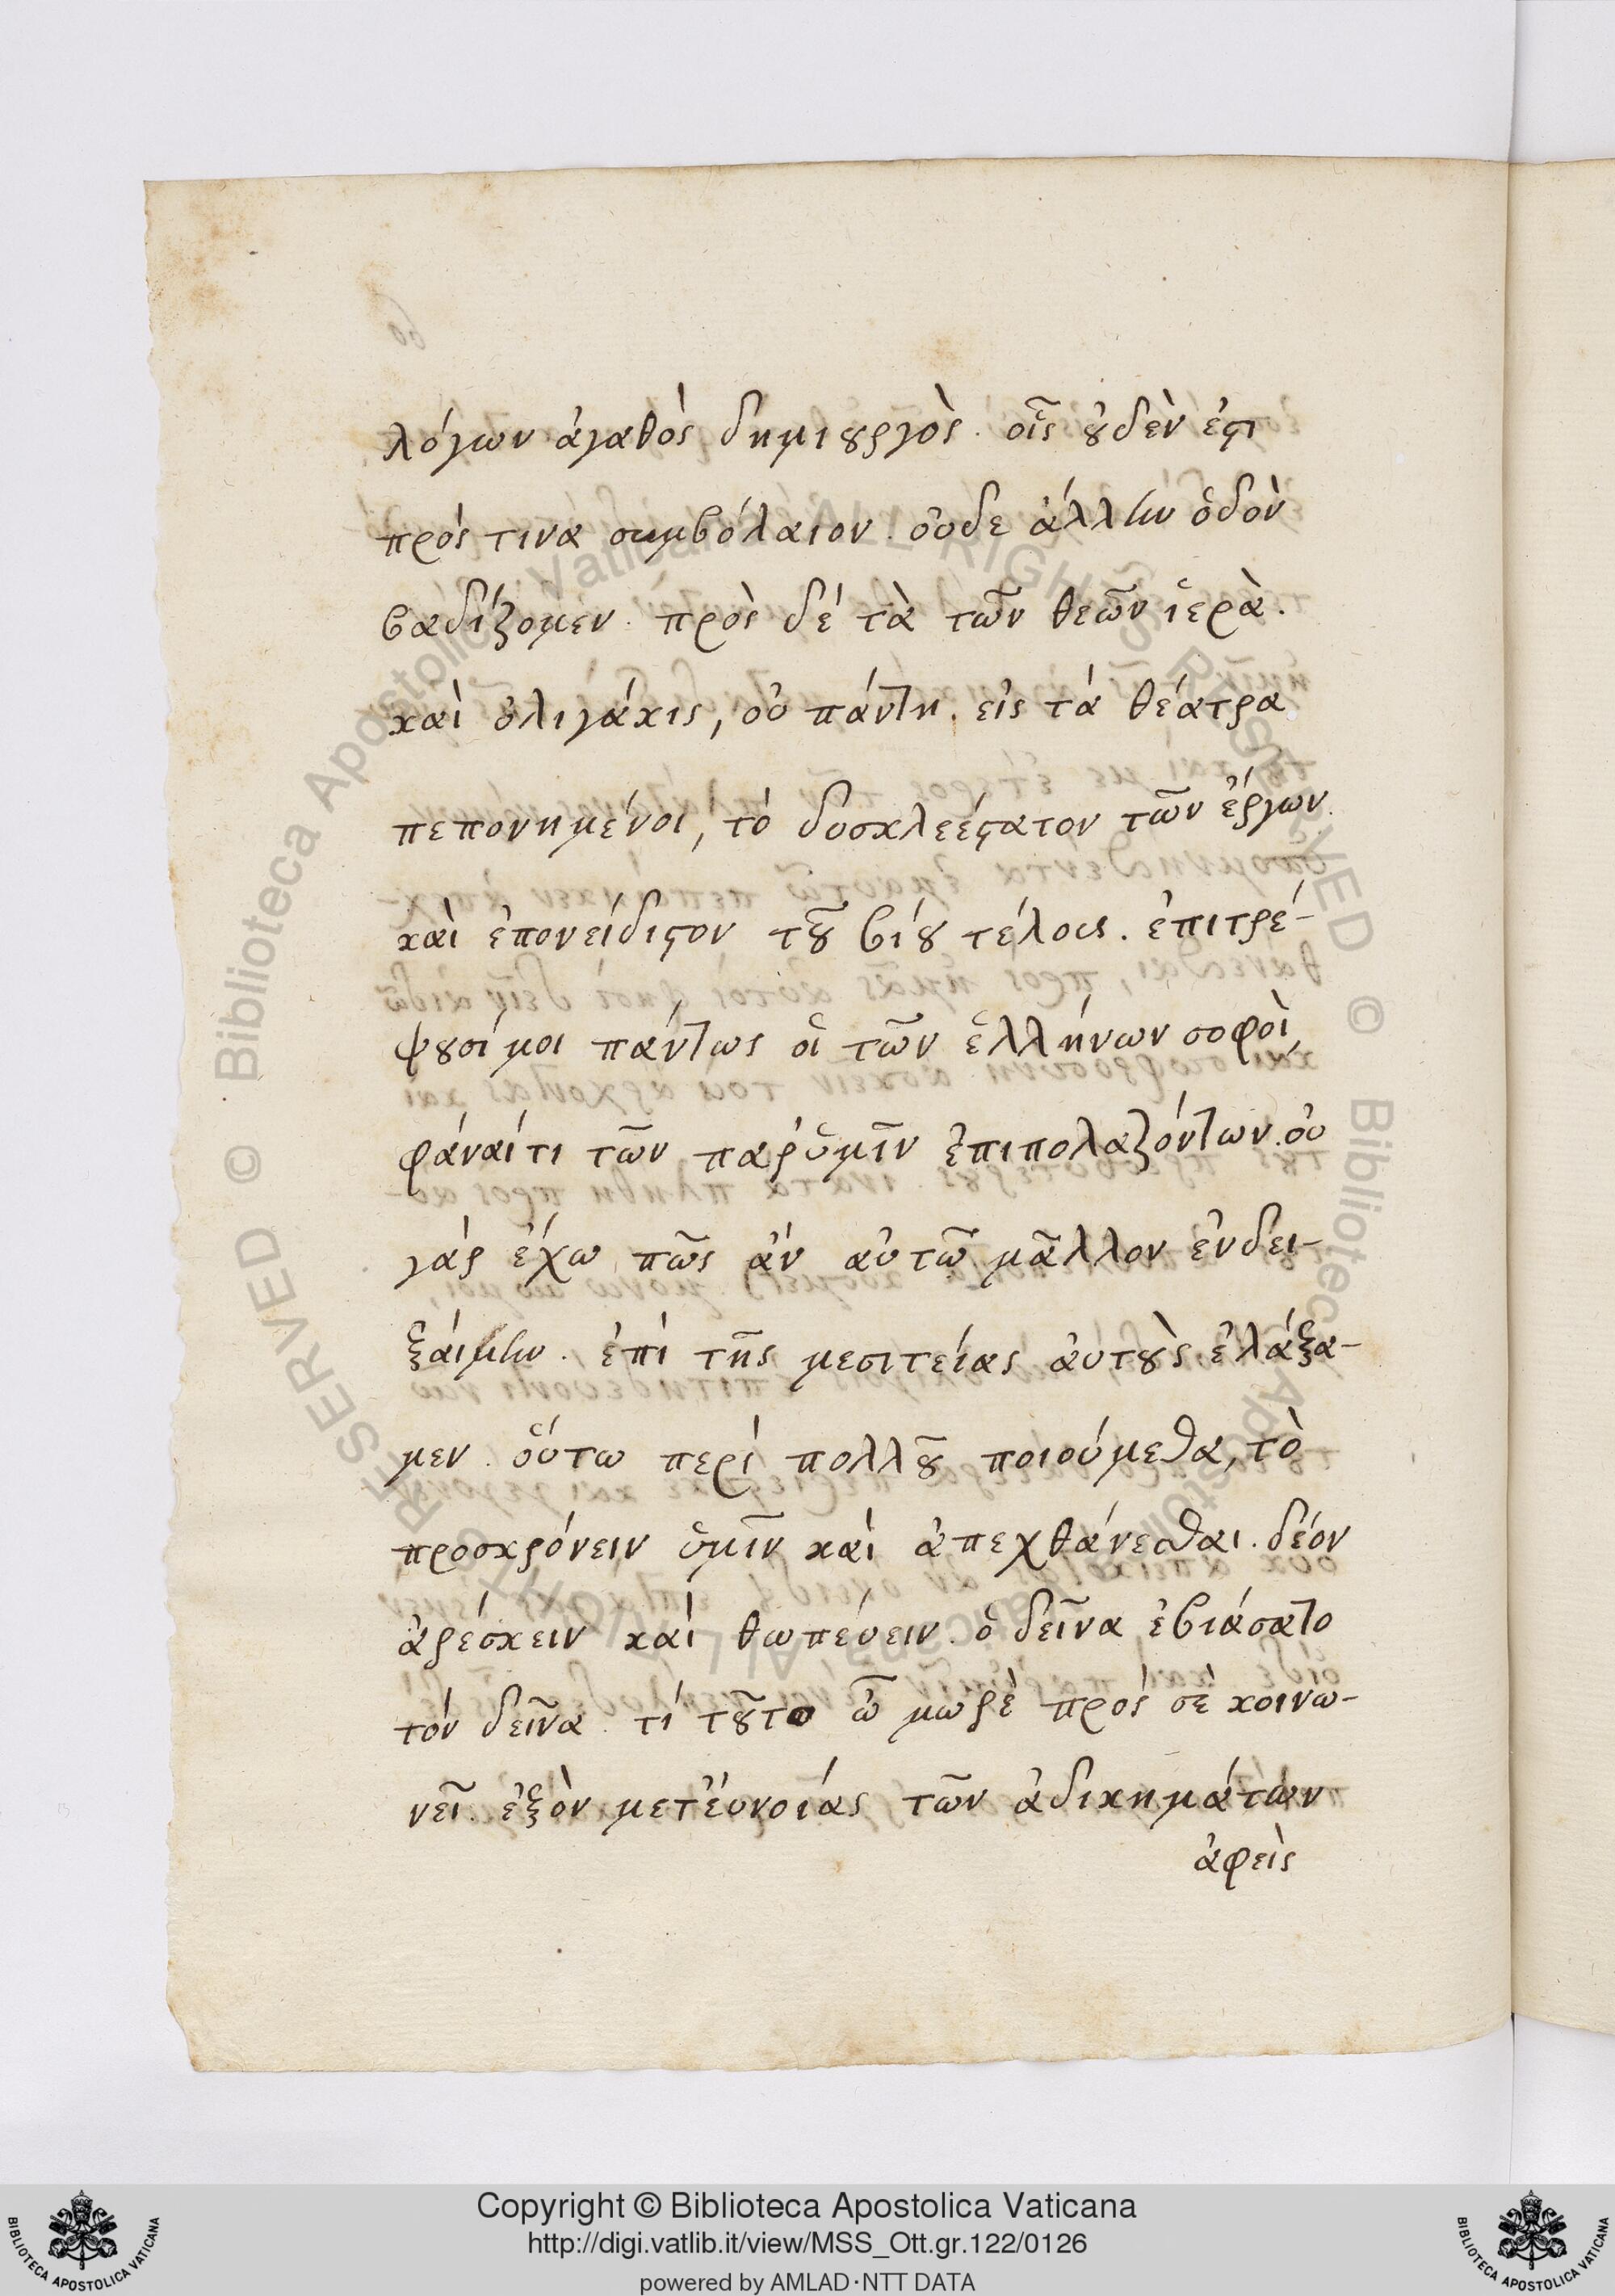 λόγων ἀγαθὸς δημιȣργὸς. οἷς ȣ̓δὲν ἐϛι
πρός τινα συμβόλαιον. οὐδε ἀλλὴν ὁδὸν
βαδίζομεν. πρὸς δέ τὰ τῶν θεῶν ἱερὰ.
καὶ ὀλιγάκις, οὐ πάντη. εἰς τά θέατρα
πεπονημένοι, τό δυσκλεέϛατον τῶν ἔργων.
καὶ ἐπονείδιϛον τȣ͂ βίȣ τέλους. ἐπιτρέ-
ψȣσί μοι πάντως οἱ τῶν ἑλλήνων σοφοὶ,
φάναί τι τῶν παρ' ὑμῖν ἐπιπολαζόντων. οὐ
γάρ ἔχω πῶς ἄν αὐτῶ μᾶλλον ἐνδει-
ξάιμην. ἐπί τῆς μεσιτείας ἀυτȣ̀ς ἐλάξα-
μεν. ὅυτω περί πολλȣ͂ ποιούμεθα, τὸ
προσκρόυειν ὑμῖν καὶ ἀπεχθάνεσθαι. δέον
ἀρέσκειν καὶ θωπέυειν. ὁ δεῖνα ἐβιάσατο
τόν δεῖνα. τί τȣ͂το ὦ μωρὲ πρός σὲ κοινω-
νεῖ. ἐξὸν μετ' ἐυνοίας τῶν ἀδικημάτων
ἀφεὶς
Copyright © Biblioteca Apostolica Vaticana
http://digi.vatlib.it/view/MSS_Ott.gr.122/0126
powered by AMLAD·NTT DATA